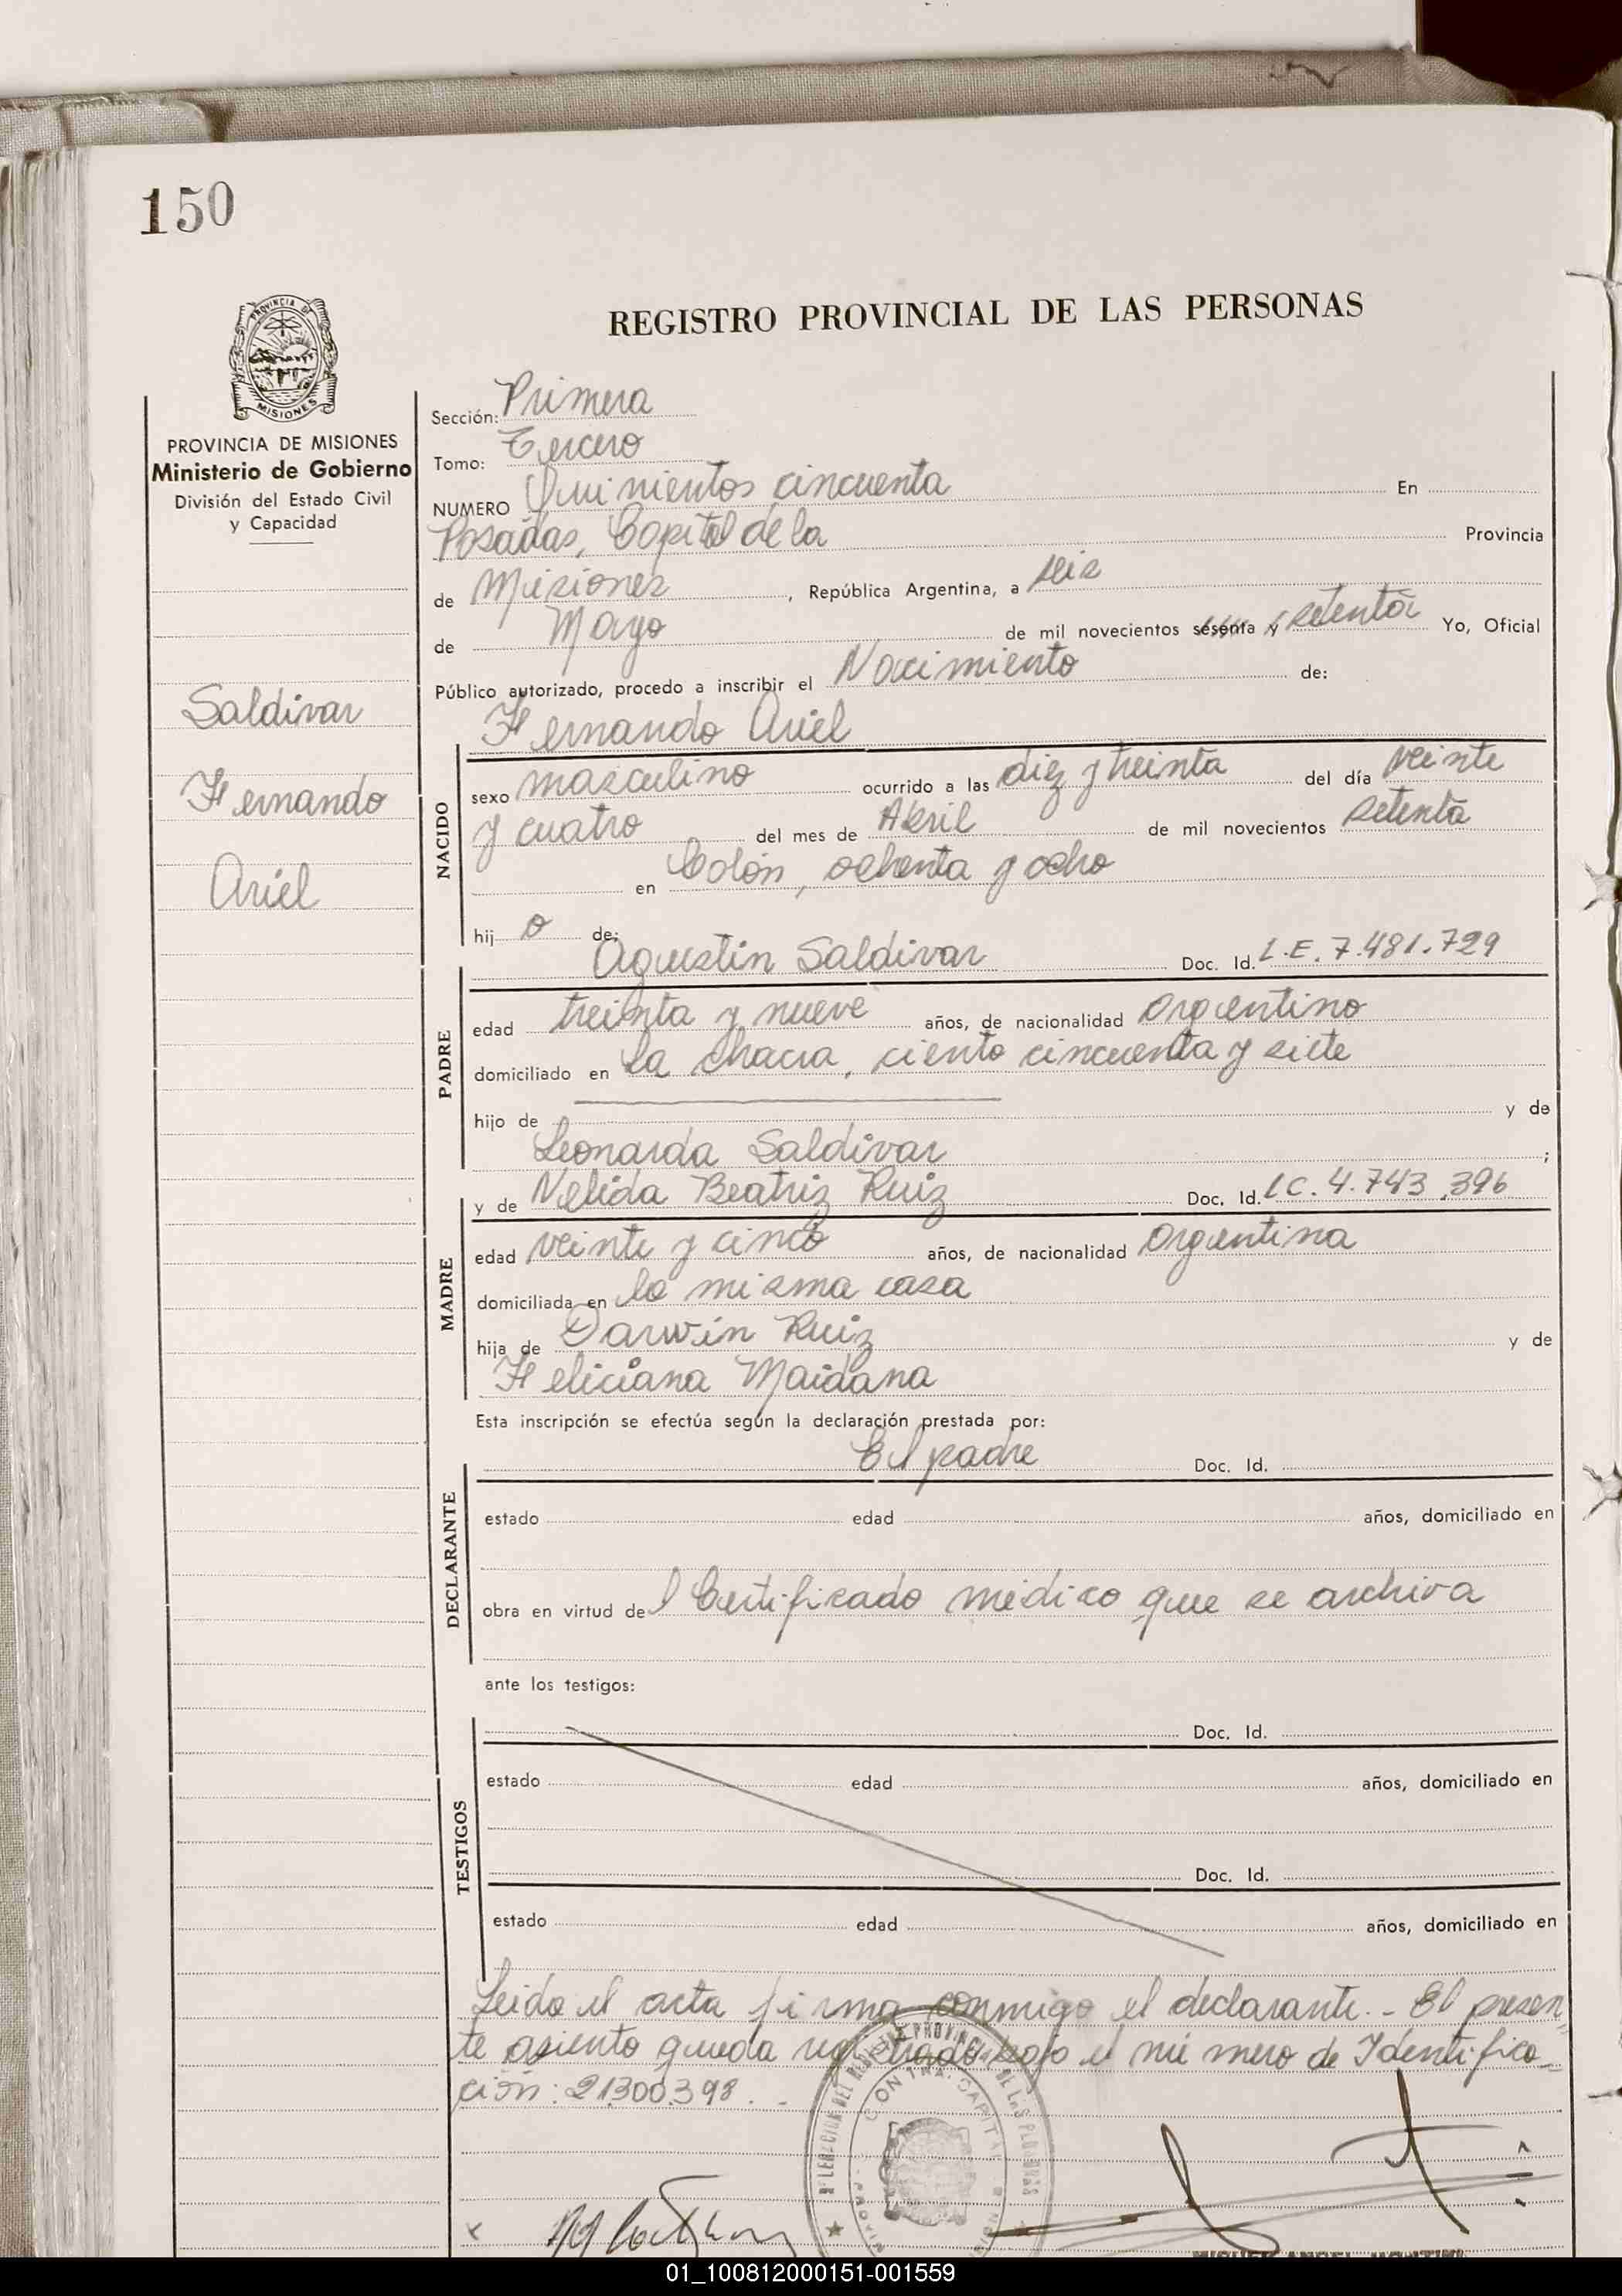 150
PROVINCIA DE
MISIONES
REGISTRO PROVINCIAL DE LAS PERSONAS
PROVINCIA DE MISIONES
Ministerio de Gobierno
División del Estado Civil
y Capacidad
Saldivar
Fernando
Ariel
Sección: Primera
Tomo: Tercero
NUMERO Quinientos cincuenta En
Posadas, Capital de la Provincia
de Misiones, República Argentina, a seis
de Mayo de mil novecientos sesenta y setenta Yo, Oficial
Público autorizado, procedo a inscribir el Nacimiento de:
Fernando Ariel
NACIDO
sexo masculino ocurrido a las diez y treinta del día veinte
y cuatro del mes de Abril de mil novecientos setenta
en Colón, ochenta y ocho
hij o de:
Agustin Saldivar Doc. Id. L.E. 7.481.729
PADRE
edad treinta y nueve años, de nacionalidad argentino
domiciliado en la chacra, ciento cincuenta y siete
hijo de y de
Leonarda Saldivar ;
y de Nelida Beatriz Ruiz Doc. Id. LC. 4.743.396
MADRE
edad veinte y cinco años, de nacionalidad argentina
domiciliada en la misma casa
hija de Darwin Ruiz y de
Feliciana Maidana
Esta inscripción se efectúa según la declaración prestada por:
El padre Doc. Id.
DECLARANTE
estado edad años, domiciliado en
obra en virtud del Certificado médico que se archiva
ante los testigos:
TESTIGOS
Doc. Id.
estado edad años, domiciliado en
Doc. Id.
estado edad años, domiciliado en
Leida el acta firma conmigo el declarante.- El presen
te asiento queda registrado bajo el número de Identifica-
ción: 21300.398.-
01_100812000151-001559